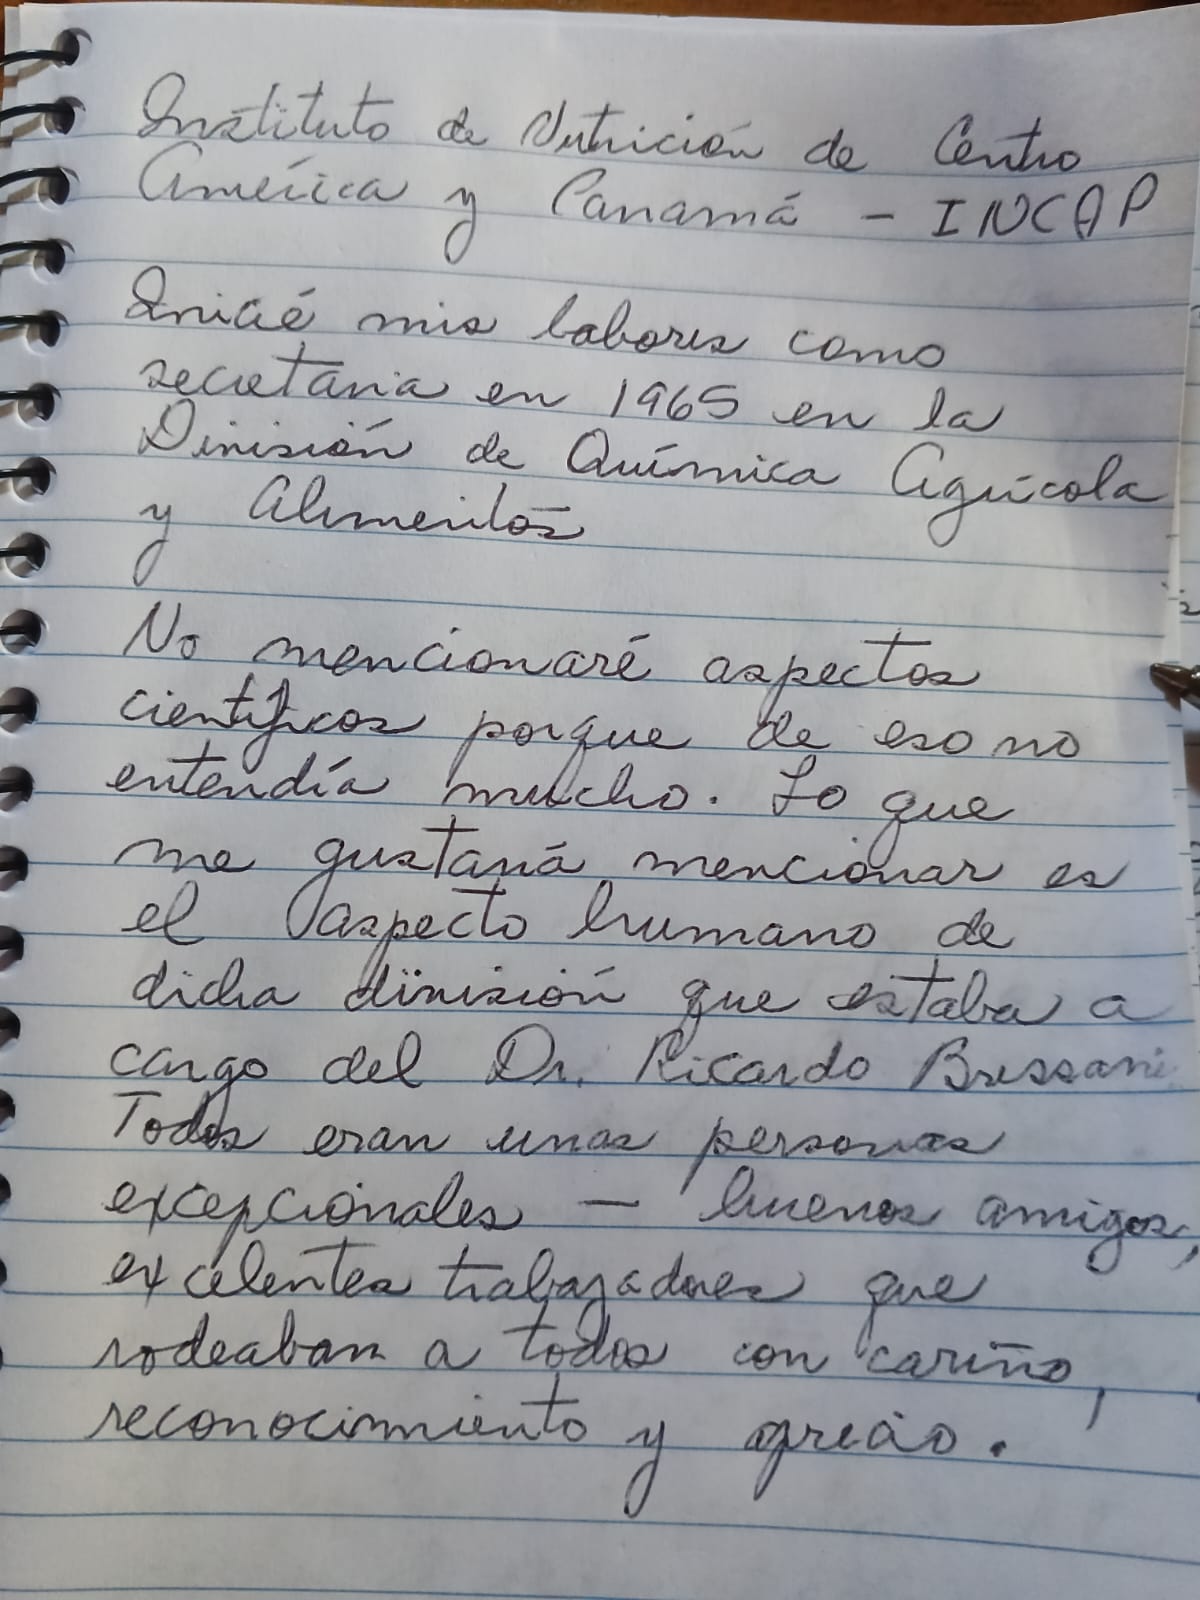 Instituto de Nutrición de Centro
América y Panamá - INCAP
Inicié mis labores como
secretaria en 1965 en la
División de Química Agrícola
y Alimentos
No mencionaré aspectos
científicos porque de eso no
entendía mucho. Lo que
me gustaría mencionar es
el aspecto humano de
dicha división que estaba a
cargo del Dr. Ricardo Bressani
Todos eran unas personas
excepcionales - buenos amigos,
excelentes trabajadores que
rodeaban a todos con cariño,
reconocimiento y aprecio.